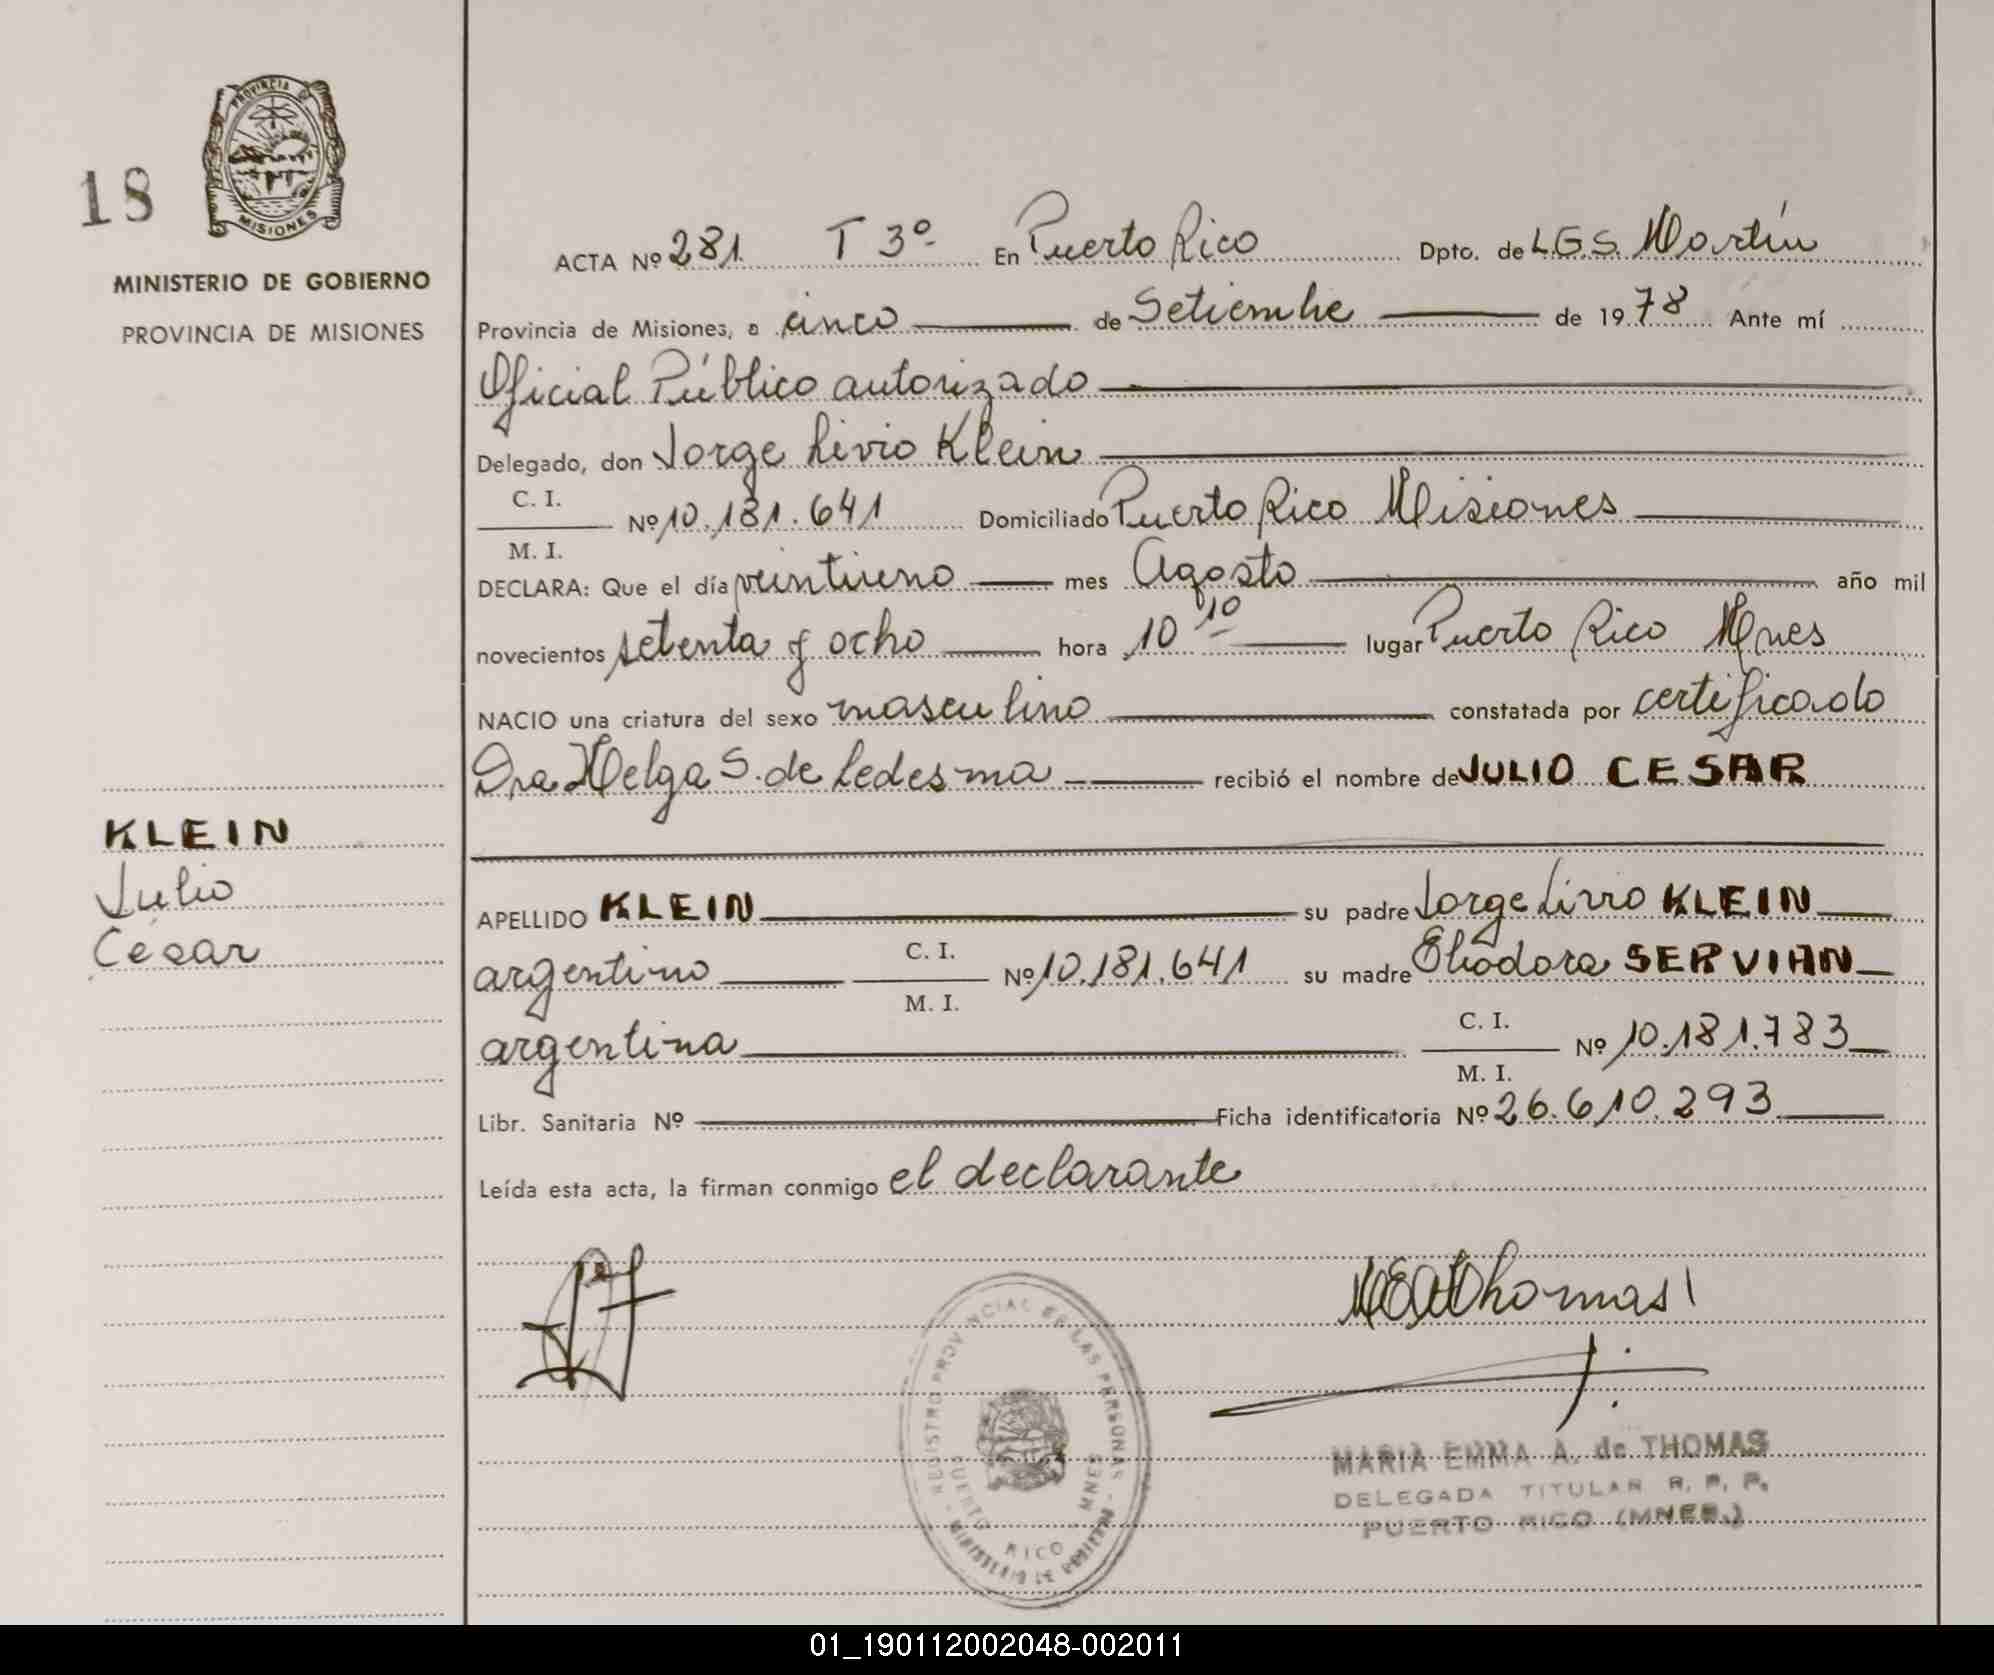 PROVINCIA D MISIONES
18
MINISTERIO DE GOBIERNO
PROVINCIA DE MISIONES
KLEIN
Julio
César
ACTA Nº 281 T 3º En Puerto Rico Dpto. de L.G.S. Martín
Provincia de Misiones, a cinco de Setiembre de 1978 Ante mí
Oficial Público autorizado
Delegado, don Jorge Livio Klein
C. I.
Nº 10.181.641 Domiciliado Puerto Rico Misiones
M. I.
DECLARA: Que el día veintiuno mes Agosto año mil
novecientos setenta y ocho hora 10 10 lugar Puerto Rico Mnes
NACIO una criatura del sexo masculino constatada por certificado
Dra Helga S. de Ledesma recibió el nombre de JULIO CESAR
APELLIDO KLEIN su padre Jorge Livio KLEIN
argentino C. I. Nº 10.181.641 su madre Eliodora SERVIAN
M. I.
argentina C. I. Nº 10.181.783
M. I.
Libr. Sanitaria Nº Ficha identificatoria Nº 26.610.293
Leída esta acta, la firman conmigo el declarante
MEAdThomas
REGISTRO PROVINCIAL DE LAS PERSONAS
PUERTO RICO MNES
MINISTERIO DE GOBIERNO
MARIA EMMA A. de THOMAS
DELEGADA TITULAR R. P. P.
PUERTO RICO (MNES.)
01_190112002048-002011